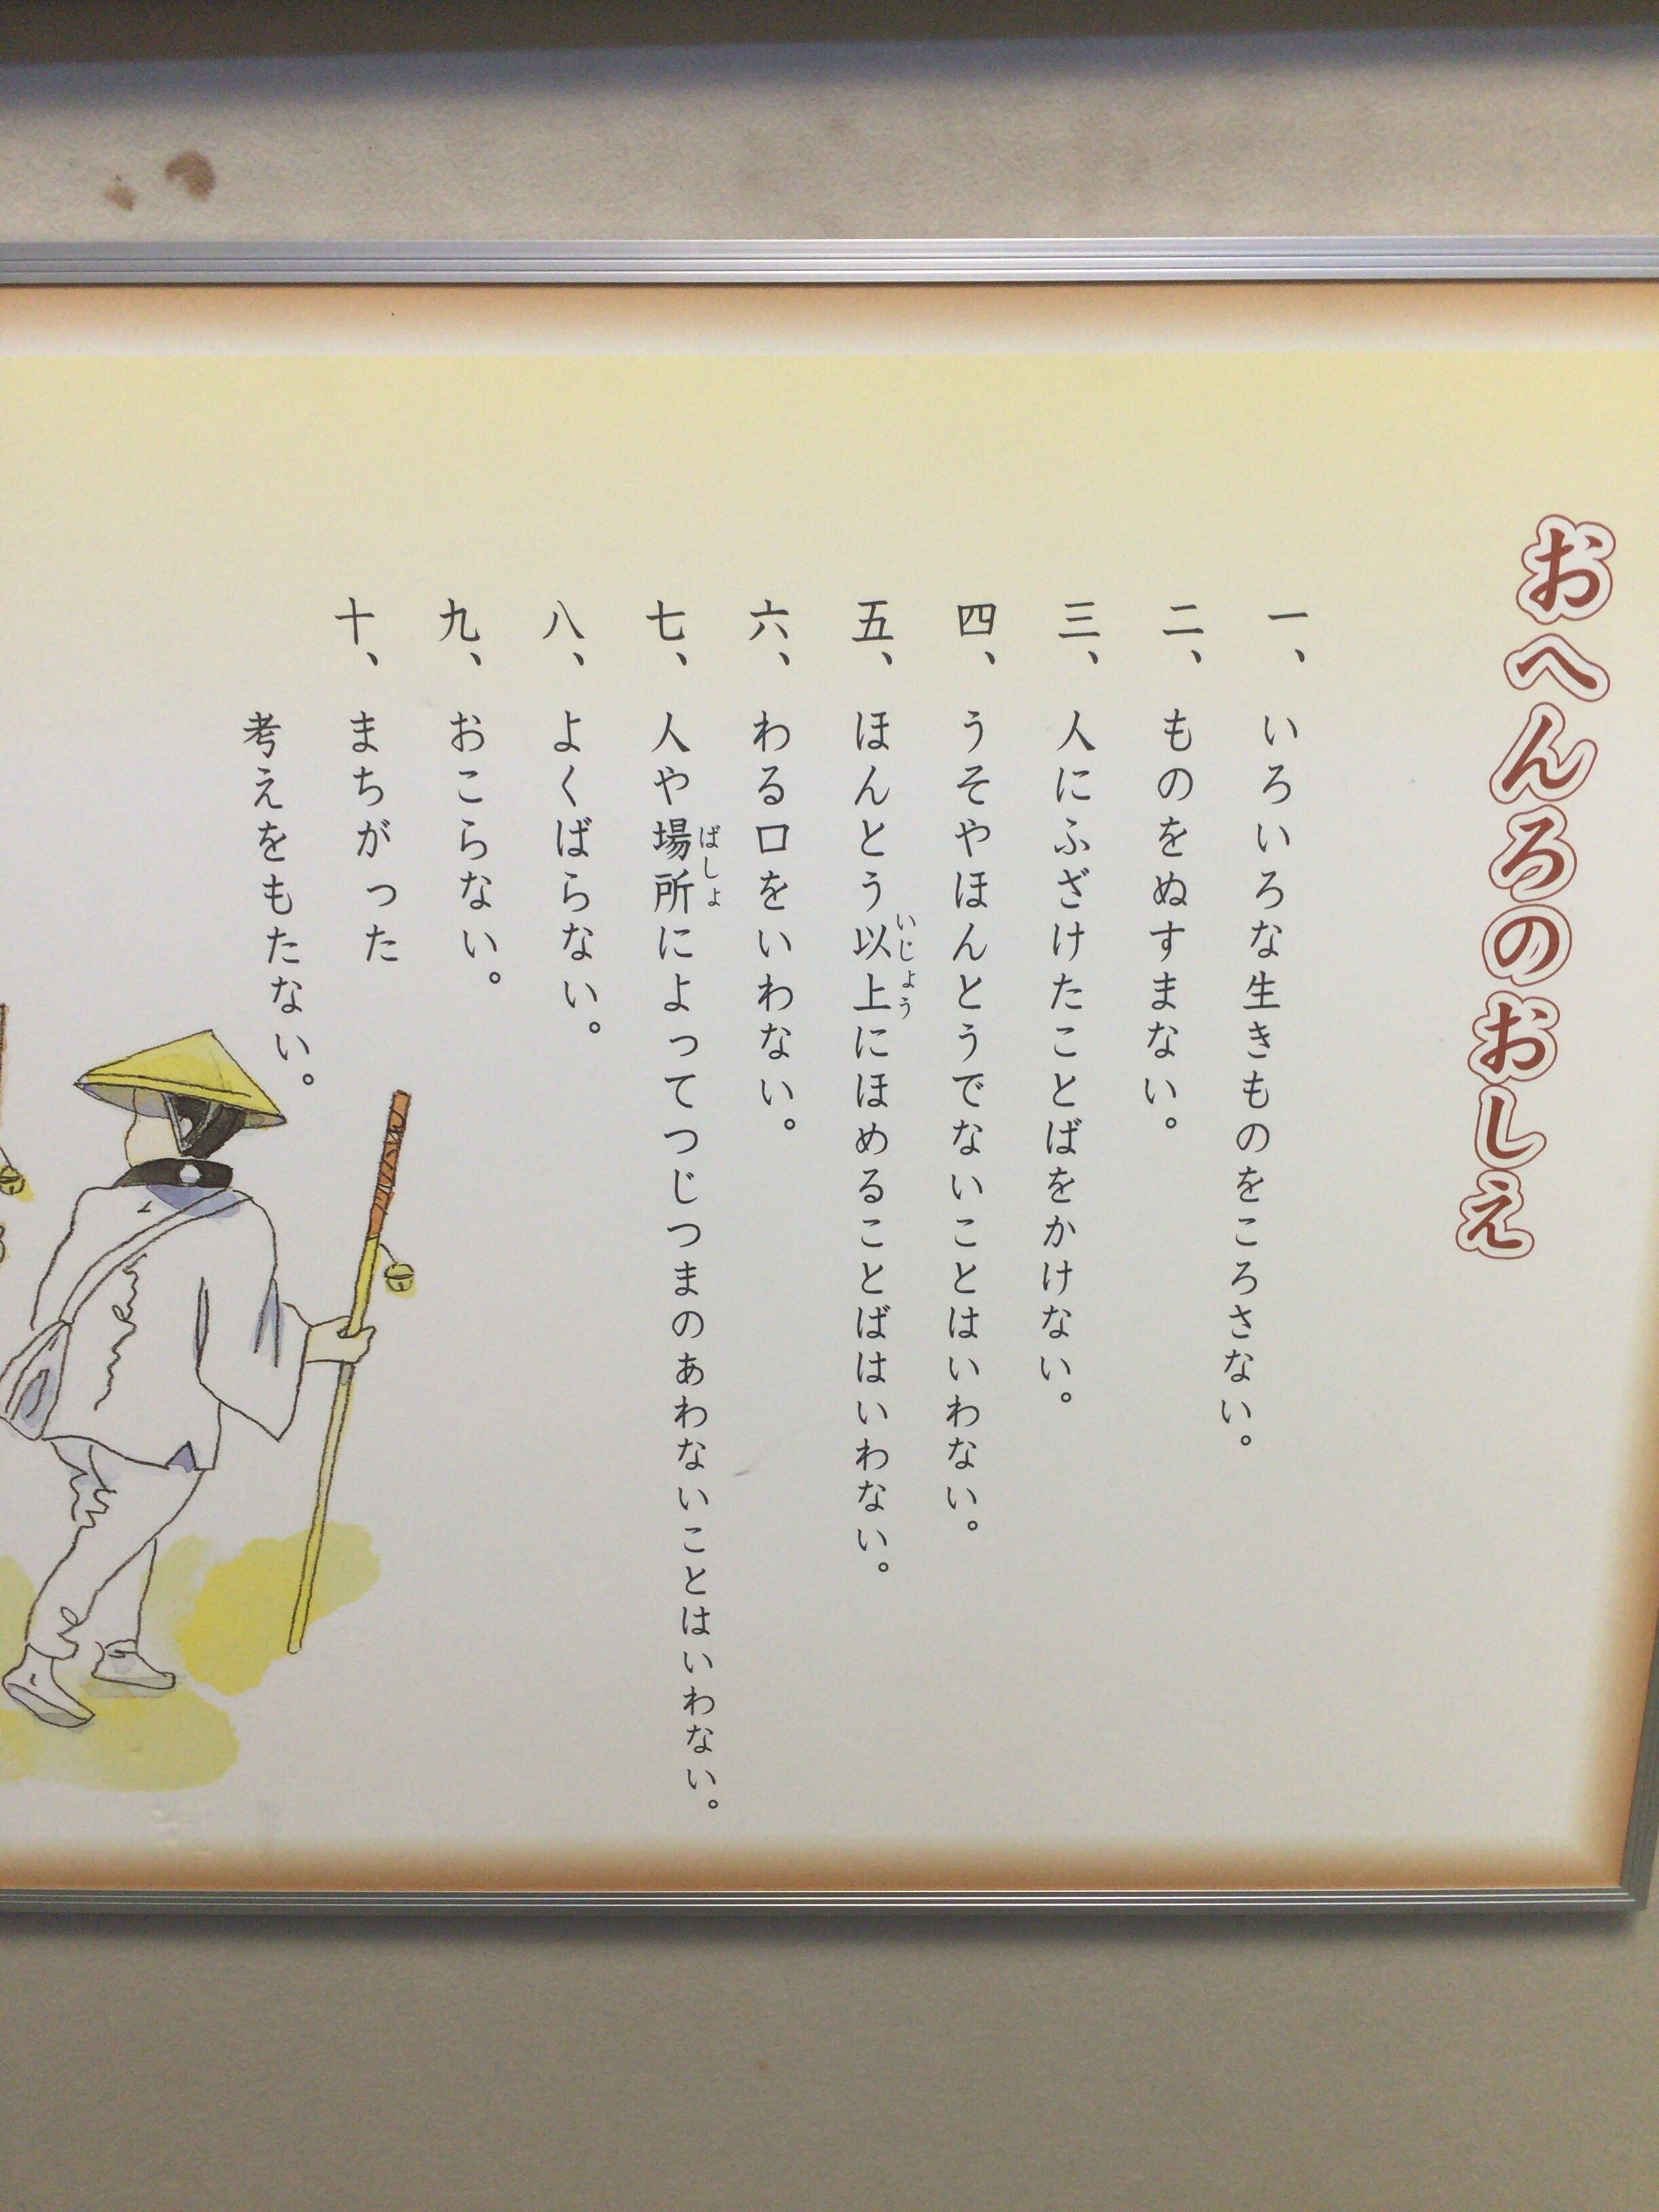 おへんろのおしえ
一、いろいろな生きものをころさない。
二、ものをぬすまない。
三、人にふざけたことばをかけない。
四、うそやほんとうでないことはいわない。
五、ほんとう以上にほめることばはいわない。
いじょう
六、わる口をいわない。
七、人や場所によってつじつまのあわないことはいわない。
ばしょ
八、よくばらない。
九、おこらない。
十、まちがった
考えをもたない。